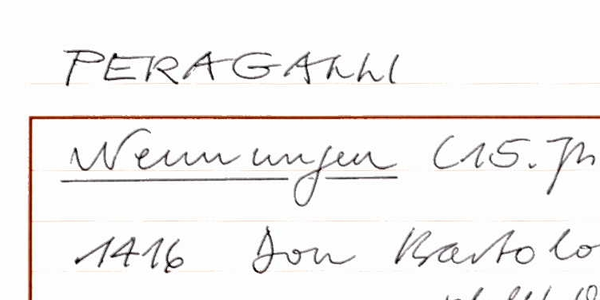 PERAGALLI
Nennungen (15. Jh
1416 Don Bartolo